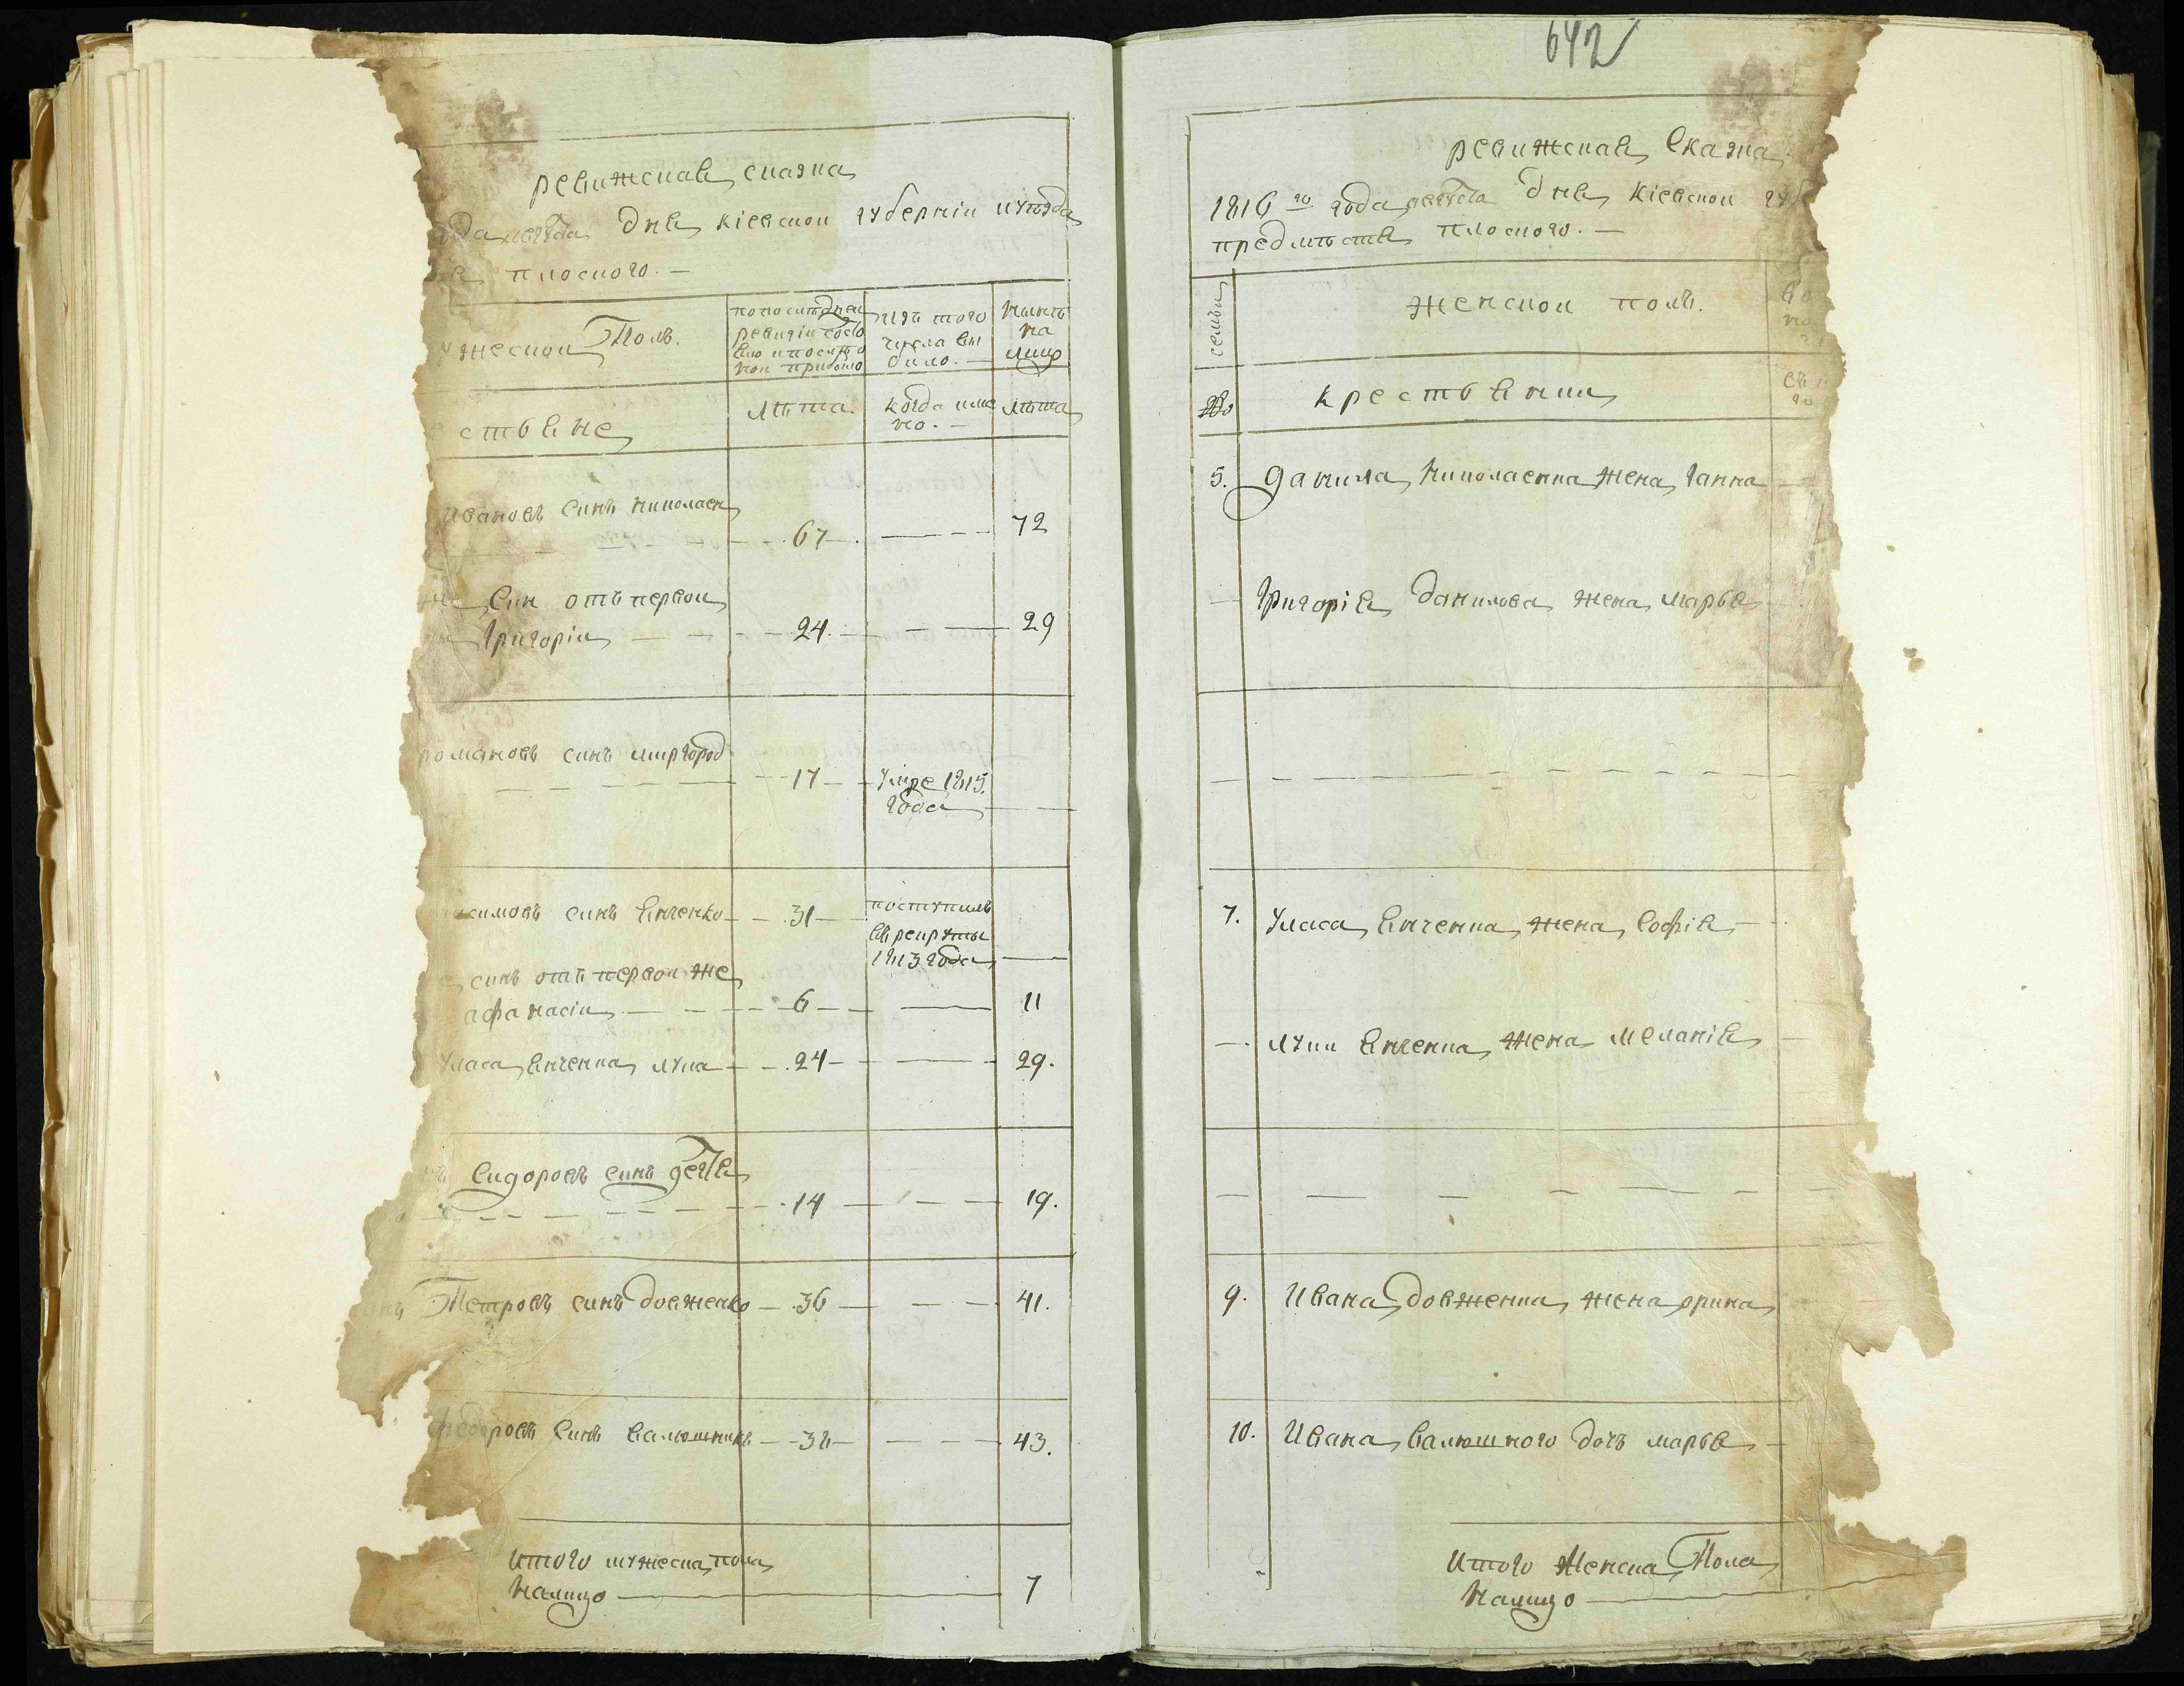 ревижская сказка
ода августа дня Кіевской губерніи и уезда
я плоского. —
ужеской Полъ.
по последней
ревизіи состо
яло и после о
ной прибыло
изъ того
числа вы
было. —
Ныне
на
лицо
ствяне
лѣта.
когда име
но. —
лѣта
Ивановъ синъ николаен
67 72
син отъ первой
Григорій 24. 29
романовъ синъ миргород
17 Умре 1815.
года
симовъ синъ Янченко 31 поступилъ
въ рекруты
1813 года
синъ отъ первой же
афанасій 6 11
Уласа Янченка лука 24 29.
Сидоровъ синъ
14 19.
Петровъ синъ довженко 36 41.
федоровъ Синъ Валюшникъ 38 43.
итого мужеска пола
налицо 7
642
ревижская Сказка
1816 го года августа дня Кіевской губ
предмѣстя плоского. —
семьи
женской полъ.
крестьянки
5. Данила Николаенка жена Ганна
Григорія Данилова жена марья
7. Уласа Янченка жена Софія
луки Янченка жена Меланія
9. Ивана довженка жена орина
10. Ивана Валюшного дочъ марья
итого Женска Пола
Налицо